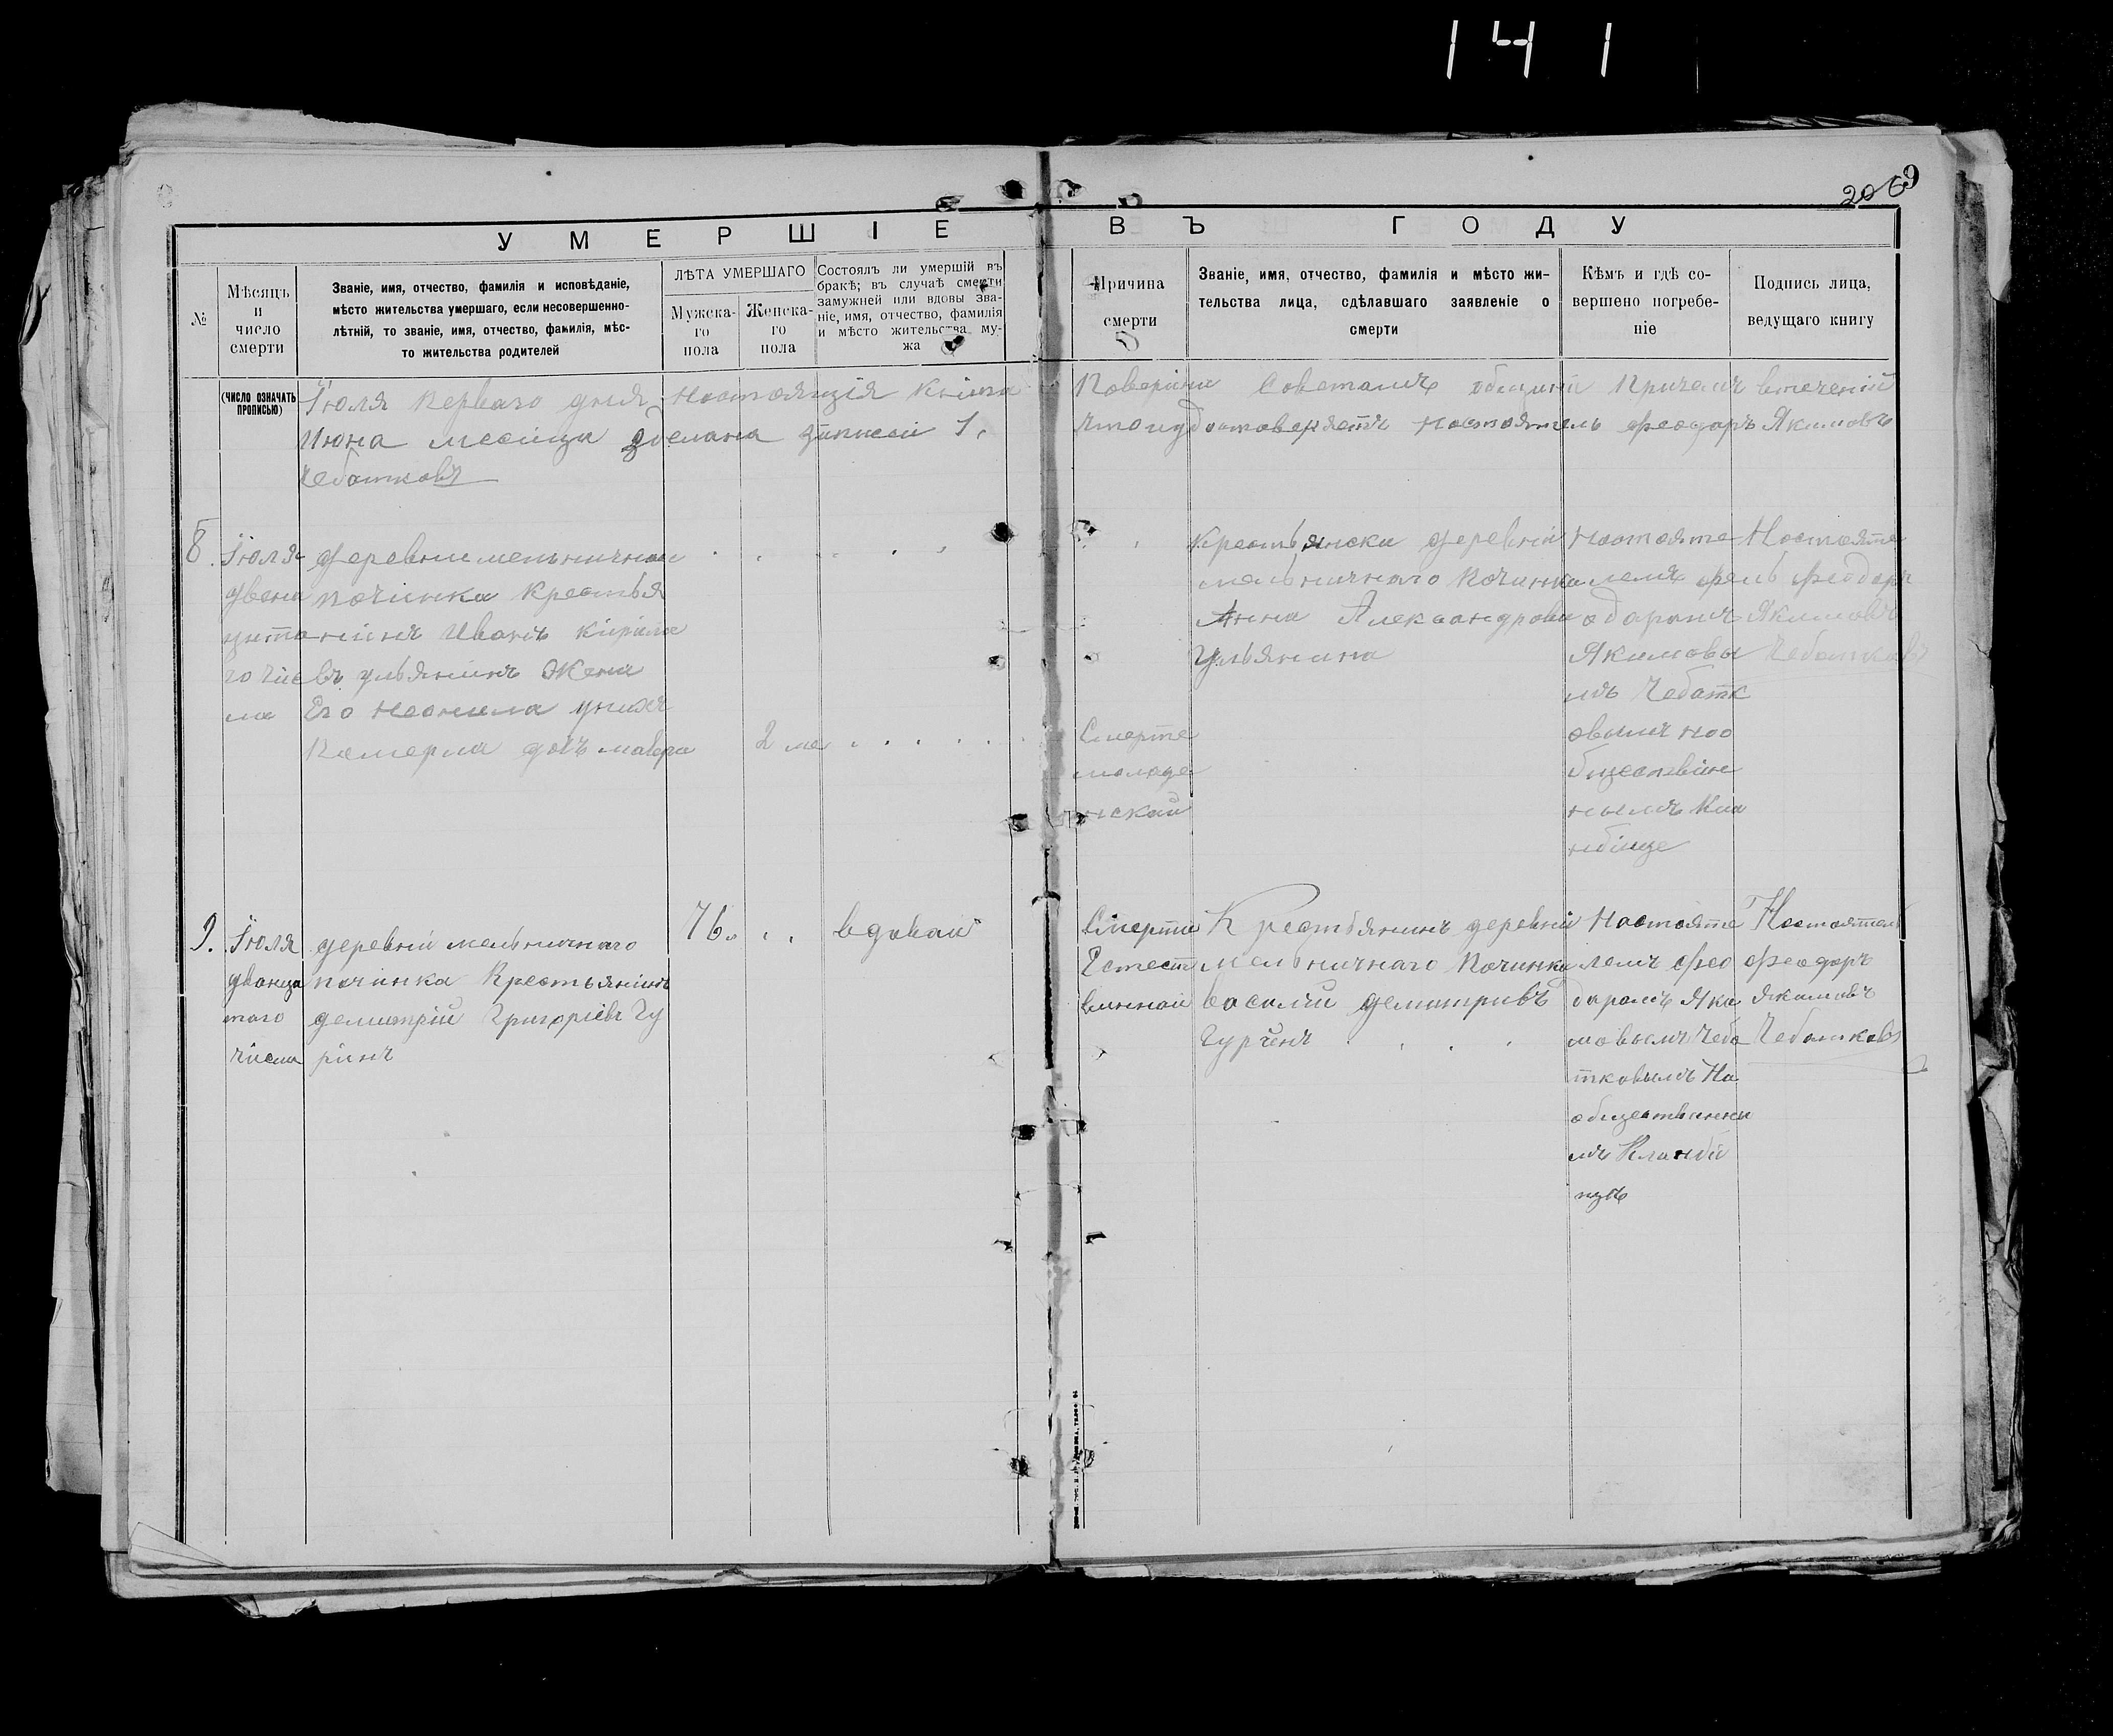 141
206 9
УМЕРШІЕ ВЪ ГОДУ
№
Мѣсяцъ
и
число
смерти
Званіе, имя, отчество, фамилія и исповѣданіе,
мѣсто жительства умершаго, если несовершенно-
лѣтній, то званіе, имя, отчество, фамилія, мѣс-
то жительства родителей
ЛѢТА УМЕРШАГО
Мужска-
го
пола
Женска-
го
пола
Состоялъ ли умершій въ
бракѣ; въ случаѣ смерти
замужней или вдовы зва-
ніе, имя, отчество, фамилія
и мѣсто жительства му-
жа
Причина
смерти
Званіе, имя, отчество, фамилія и мѣсто жи-
тельства лица, сдѣлавшаго заявленіе о
смерти
Кѣмъ и гдѣ со-
вершено погребе-
ніе
Подпись лица,
ведущаго книгу
(ЧИСЛО ОЗНАЧАТЬ
ПРОПИСЬЮ)
Іюля перваго дня настоящія книга
Июна месяца зделана записей 1.
Чебатковъ
Поверіна Советамъ общини Причемъ втеченій
что иудостоверяетъ настоятель феодаръ Якимовъ
Іюля
двена
цата
го чис
ла
деревни мельничнаи
починка Крестья
нинъ Иванъ Кирила
въ ульянинъ Жена
Его Неонила унихъ
Памерла дочъ мавра
2 ме
Смерте
младе
нскаи
Крестьянски деревній
мельничнаго Починка
Анна Александрова
Ульянина
Настояте
лемъ фе
одарамъ
Якимовы
мъ Чебатк
овымъ нао
бществине
нымъ Кла
дбище
Настояте
ль феодаръ
Якимовъ
Чебатковъ
9.
Іюля
дванца
таго
Числа
деревній мельничнаго
починка Крестьянинъ
демитрій Григоріевъ Гу
ринъ
76.
вдаваи
Смерти
Естест
винаи
Крестьянинъ деревній
мельничнаго Починка
василій демитривъ
Гуринъ
Настояте
лемъ фео
дарамъ Яки
мовымъ Чеба
тковымъ На
обществинны
мъ Кландби
щѣ
Настоятель
феодаръ
якимовъ
Чебатковъ